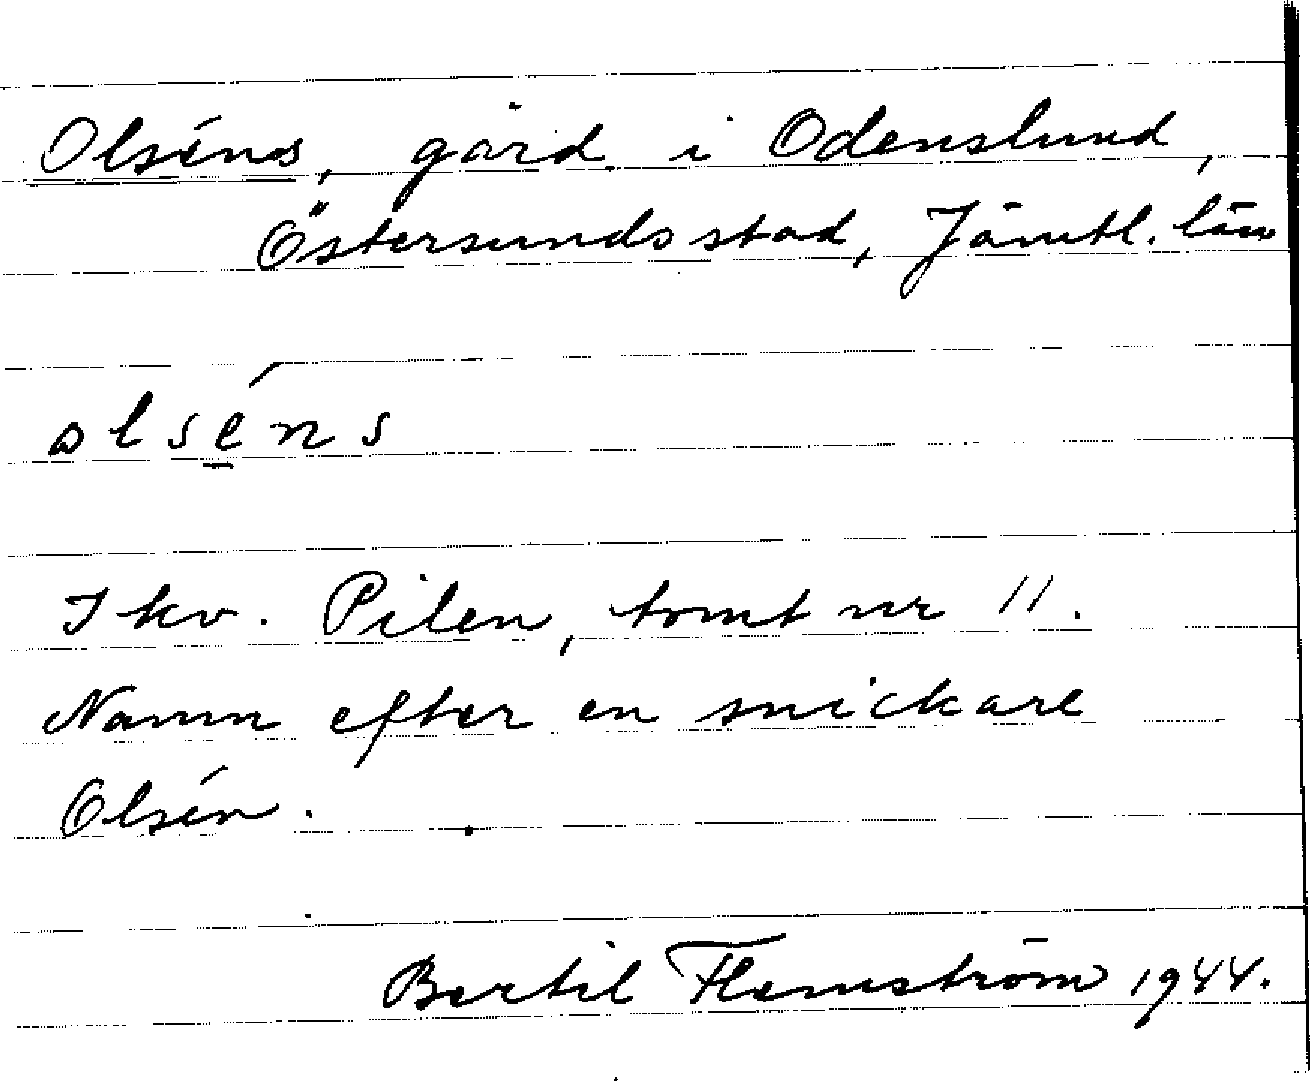 Olséns, gård i Odenslund,
Östersunds stad, Jämtl. län
olséns
I kv. Pilen, tomt nr 11.
Namn efter en snickare
Olsén.
Bertil Flemström 1944.